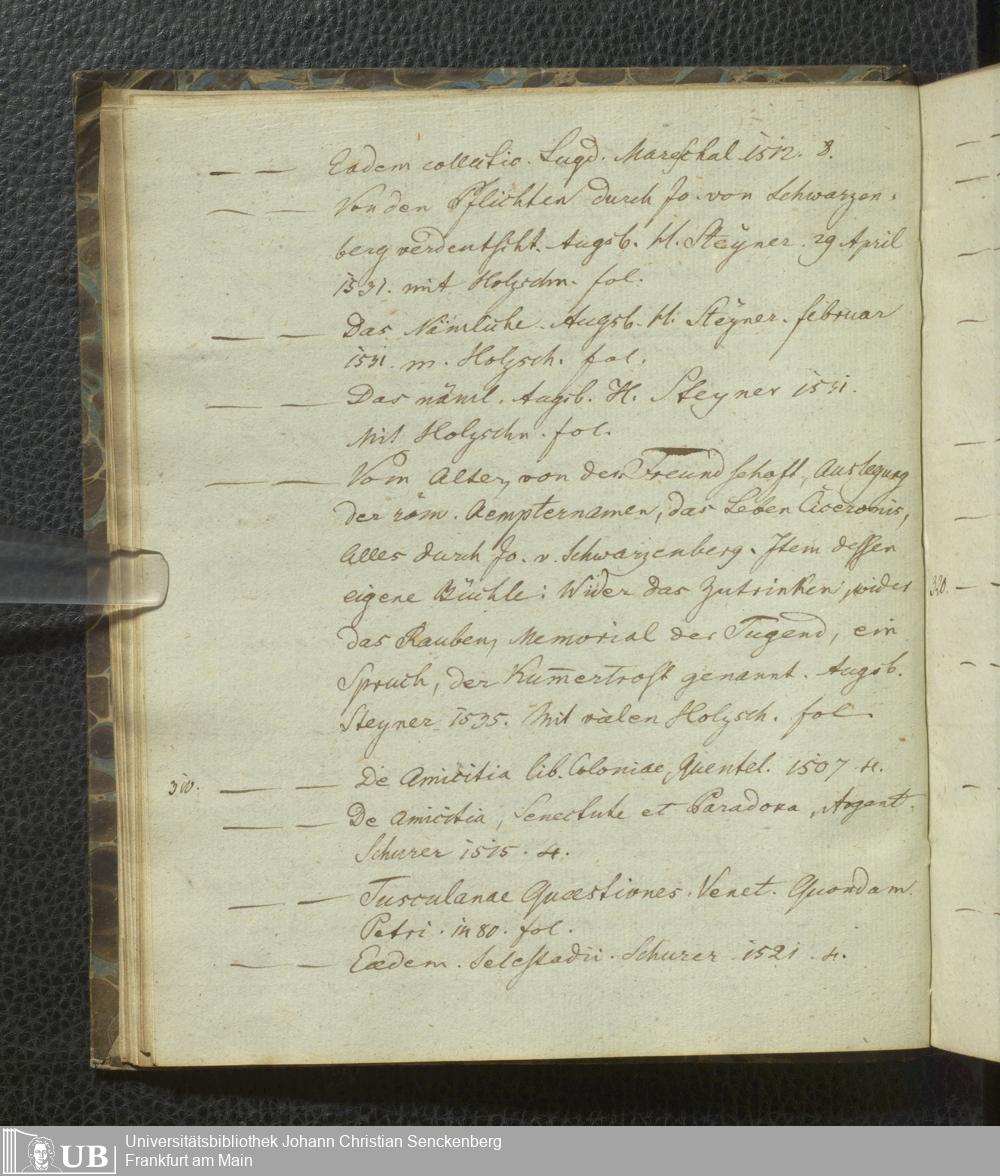 — — Eadem collectio. Lugd. Mareschal 1512. 8.
— — Von den Pflichten durch Jo. von Schwarzen-
berg verdeutscht. Augsb. H. Steyner. 29 April
1531. mit Holzschn. fol.
— — Das Nämliche. Augsb. H. Steyner. februar
1531. m. Holzsch. fol.
— — Das näml. Augsb. H. Steyner 1531.
Mit Holzschn. fol.
— — Vom Alter, von der Freundschaft, Auslegung
der röm. Aempternamen, das Leben Ciceronis,
Alles durch Jo. v. Schwarzenberg. Item dessen
eigene Büchle: Wider das Zutrinken, wider
das Rauben, Memorial der Tugend, ein
Spruch, der Kum̄ertrost genannt. Augsb.
Steyner 1535. Mit vielen Holzsch. fol.
310. — — De Amicitia lib. Coloniae, Quentel. 1507 4.
— — De amicitia, Senectute et Paradoxa, Argent.
Schurer 1515. 4.
— — Tusculanae Quæstiones. Venet. Quondam
Petri. 1480. fol.
— — Eædem. Selestadii. Schurer 1521. 4.
320. —
UB
Universitätsbibliothek Johann Christian Senckenberg
Frankfurt am Main